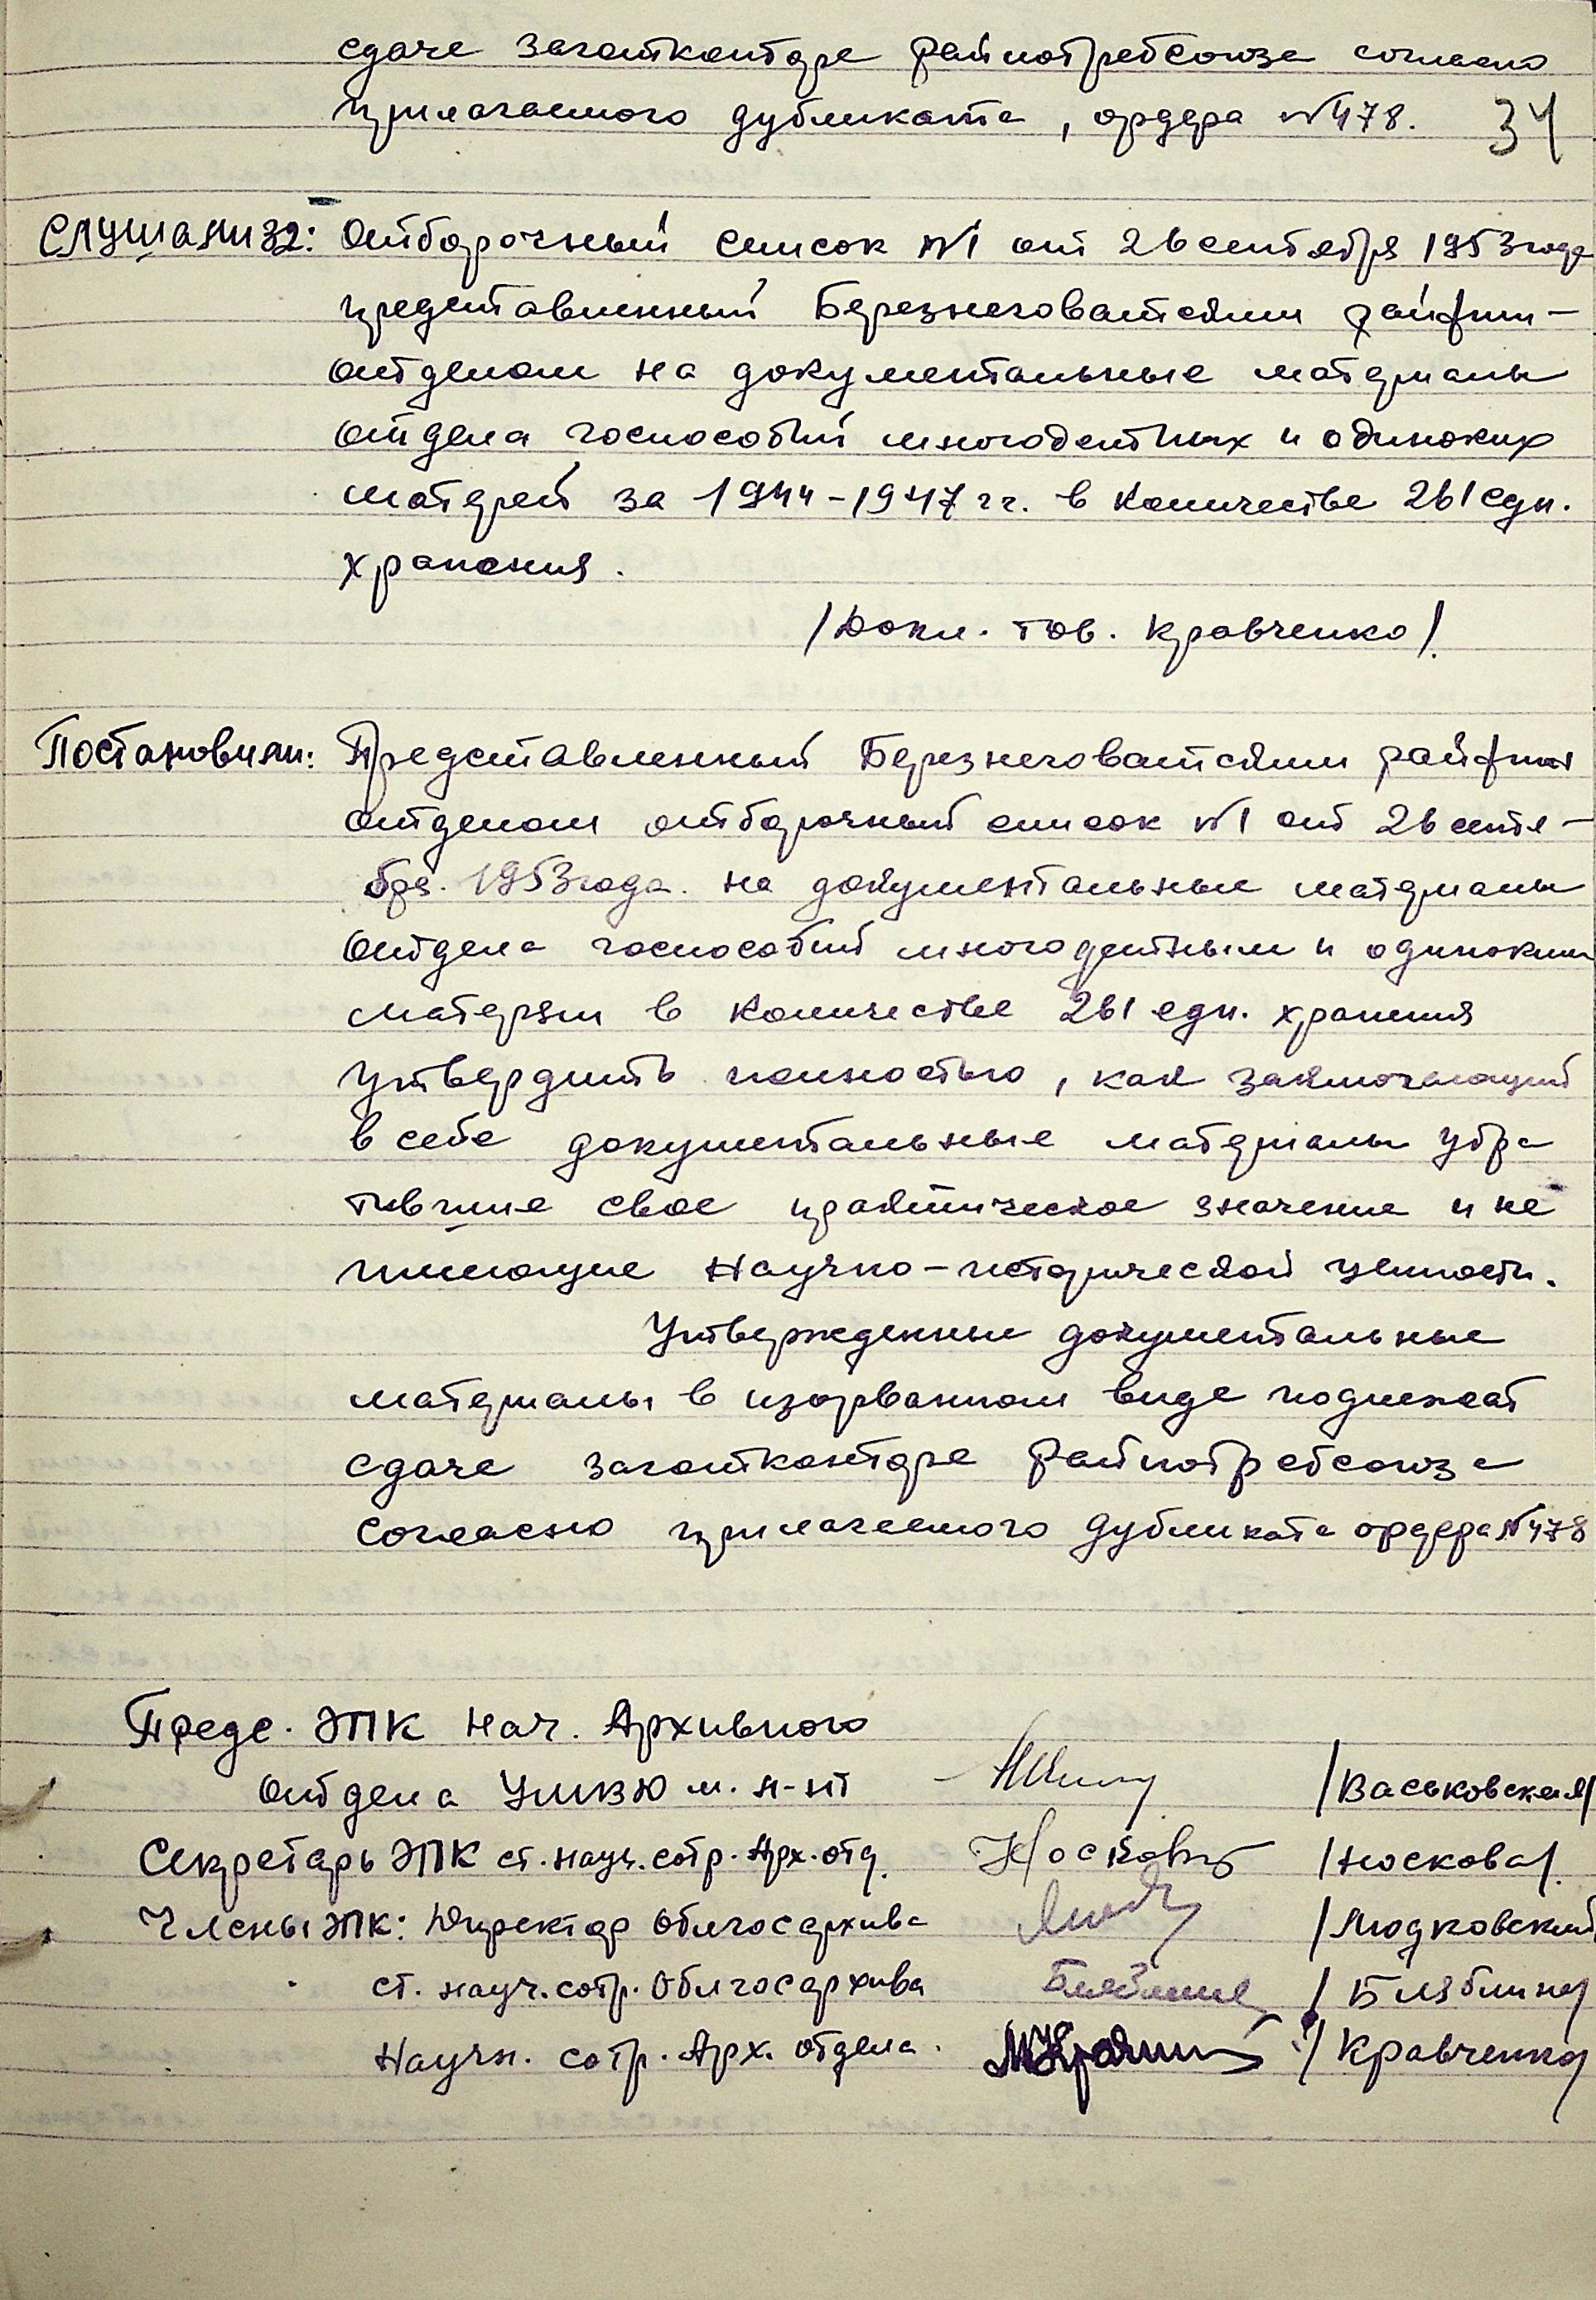 сдаче заготконторе райпотребсоюза согласно
прилагаемого дубликата, ордера №478. 34
Слушали 32: Отборочный список №1 от 26 сентября 1953 года
представленный Березнеговатским райфин-
отделом на документальные материалы
отдела госпособий многодетных и одиноких
матерей за 1944-1947 гг. в количестве 261 един.
хранения.
/Докл. тов. Кравченко/.
Постановили: Представленный Березнеговатским райфин
отделом отборочный список №1 от 26 сентя-
бря. 1953 года. на документальные материалы
отдела госпособий многодетным и одиноким
матерям в количестве 261 един. хранения
утвердить полностью, как заключающий
в себе документальные материалы утра
тившие свое практическое значение и не
имеющие научно-исторической ценности.
Утвержденные документальные
материалы в изорванном виде подлежат
сдаче заготконторе райпотребсоюза
согласно прилагаемого дубликата ордера №478
Предс. ЭПК Нач. Архивного
отдела УМВД /Васьковская/
Секретарь ЭПК ст. науч. сотр. Арх. отд. Носкова /Носкова/.
Члены ЭПК: Директор Облгосархива /Людковский
ст. науч. сотр. Облгосархива Бляблина /Бляблина/
Научн. сотр. Арх. отдела. /Кравченко/